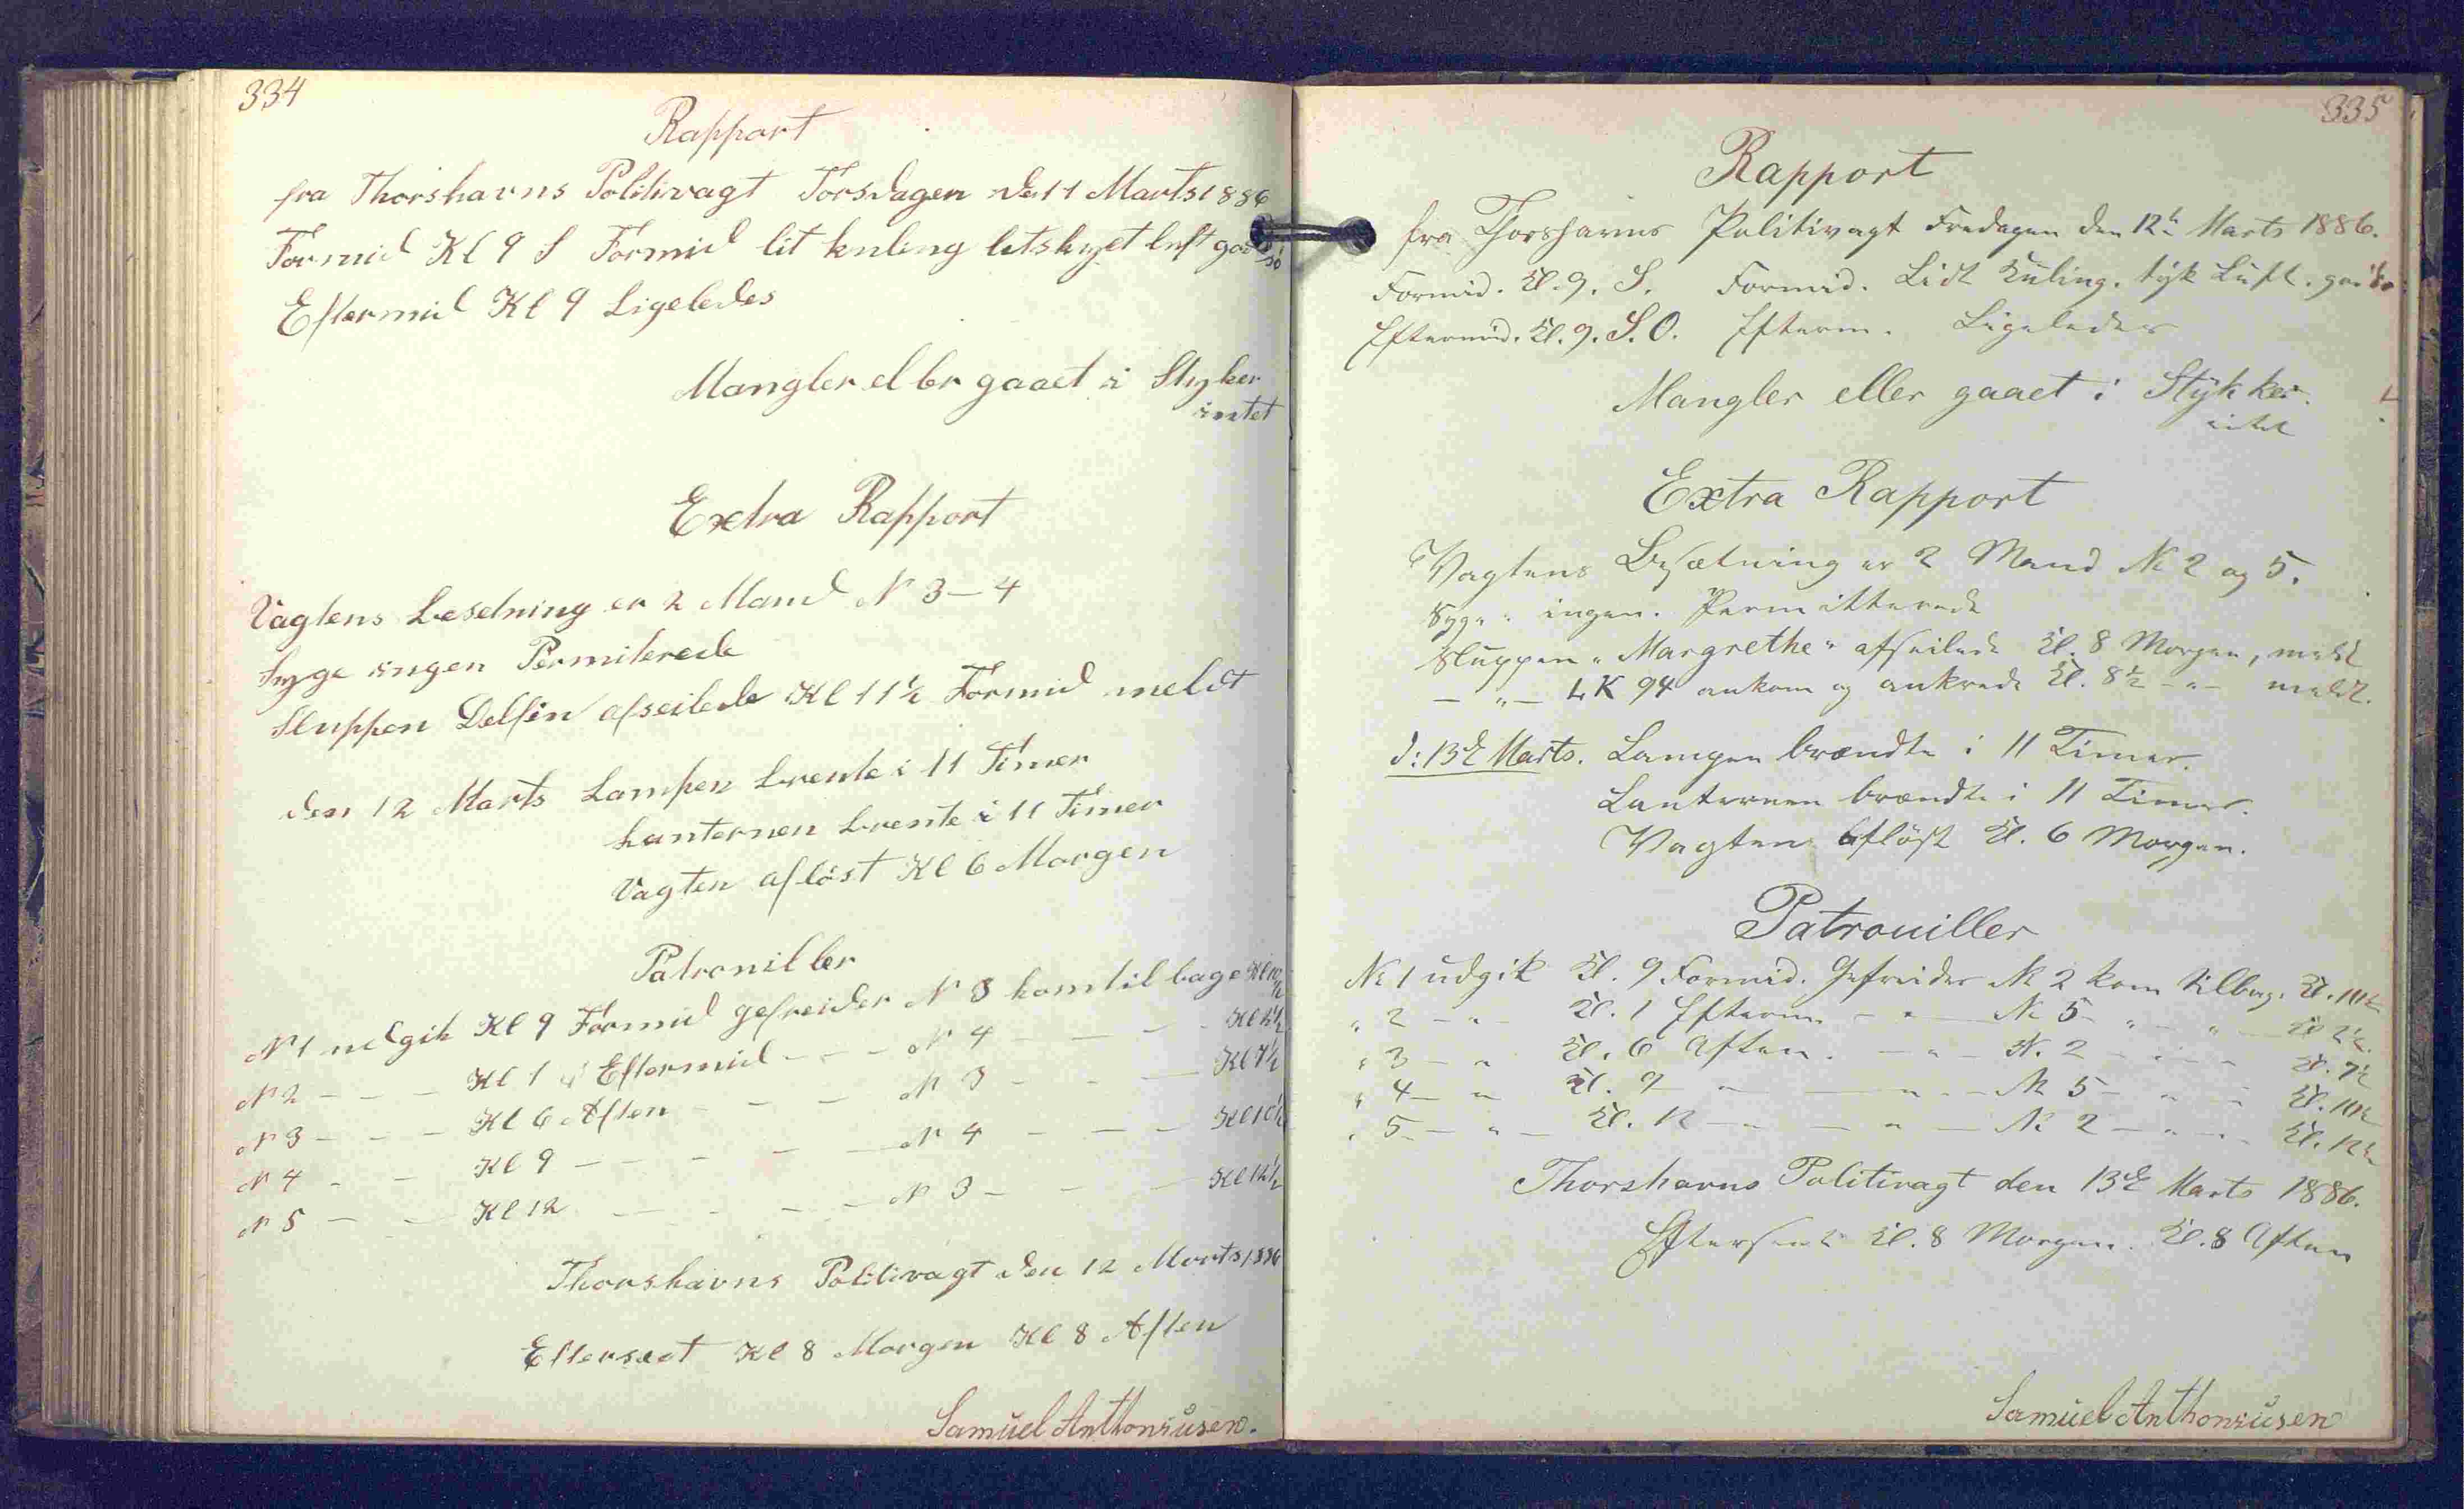 334
Rapport
fra Thorshavns Politivagt Torsdagen den 11 Marts 1886
Formid Kl 9 S Formid lit kuling letskyet luft god
Eftermid Kl 9 Ligeledes
Mangler eller gaaet i Styker
intet
Extra Rapport
Vagtens besetning er 2 Mand N 3 – 4
Syge ingen Permiterede
Sluppen Delfin afseilede Kl 11½ Formid meldt
den 12 Marts Lampen brente i 11 Timer
Lanternen brente i 11 Timer
Vagten afløst Kl 6 Morgen
Patrouiller
N 1 udgik Kl 9 Formid gefreider N 3 kom til bage Kl 10½
N 2 – – – Kl 1 Eftermid – – – N 4 – – – Kl 2½
N 3 – – – Kl 6 Aften – – – N 3 – – – Kl 7½
N 4 – – Kl 9 – – – – – N 4 – – – Kl 10½
N 5 – – Kl 12 – – – – N 3 – – – Kl 12½
Thorshavns Politivagt den 12 Marts 1886
Efterseet Kl 8 Morgen Kl 8 Aften
Samuel Anthoniusen.
335
Rapport
fra Thorshavns Politivagt Fredagen den 12te Marts 1886.
Formid. Kl. 9. S. Formid. Lidt Kuling. tyk Luft. god
Eftermid. Kl. 9. S.O. Efterm. Ligeledes
Mangler eller gaaet i Stykker.
intet
Extra Rapport
Vagtens Besætning er 2 Mand № 2 og 5.
Syge " ingen. Permitterede
Sluppen "Margrethe" afseilede Kl. 8 Morgen, meldt
– " – LK 94 ankom og ankrede Kl. 8½ – " – meldt.
d: 13de Marts. Lampen brændte i 11 Timer.
Lanternen brændte i 11 Timer.
Vagten afløst Kl. 6 Morgen.
Patrouiller
№ 1 udgik Kl. 9 Formid. Gefreider № 2 kom tilbag. Kl. 10½
" 2 – " – Kl. 1 Efterm – " – № 5 – " – " – Kl 2½.
" 3 – " Kl. 6 Aften. – " – №. 2 – " – " Kl. 7½
" 4 – " Kl. 9 – " – – " – № 5 – " – " Kl. 10½
" 5. – " – Kl. 12 – " – – " – № 2 – " – " Kl. 12½
Thorshavns Politivagt den 13de Marts 1886.
Efterseet Kl. 8 Morgen. Kl. 8 Aften
Samuel Anthoniusen